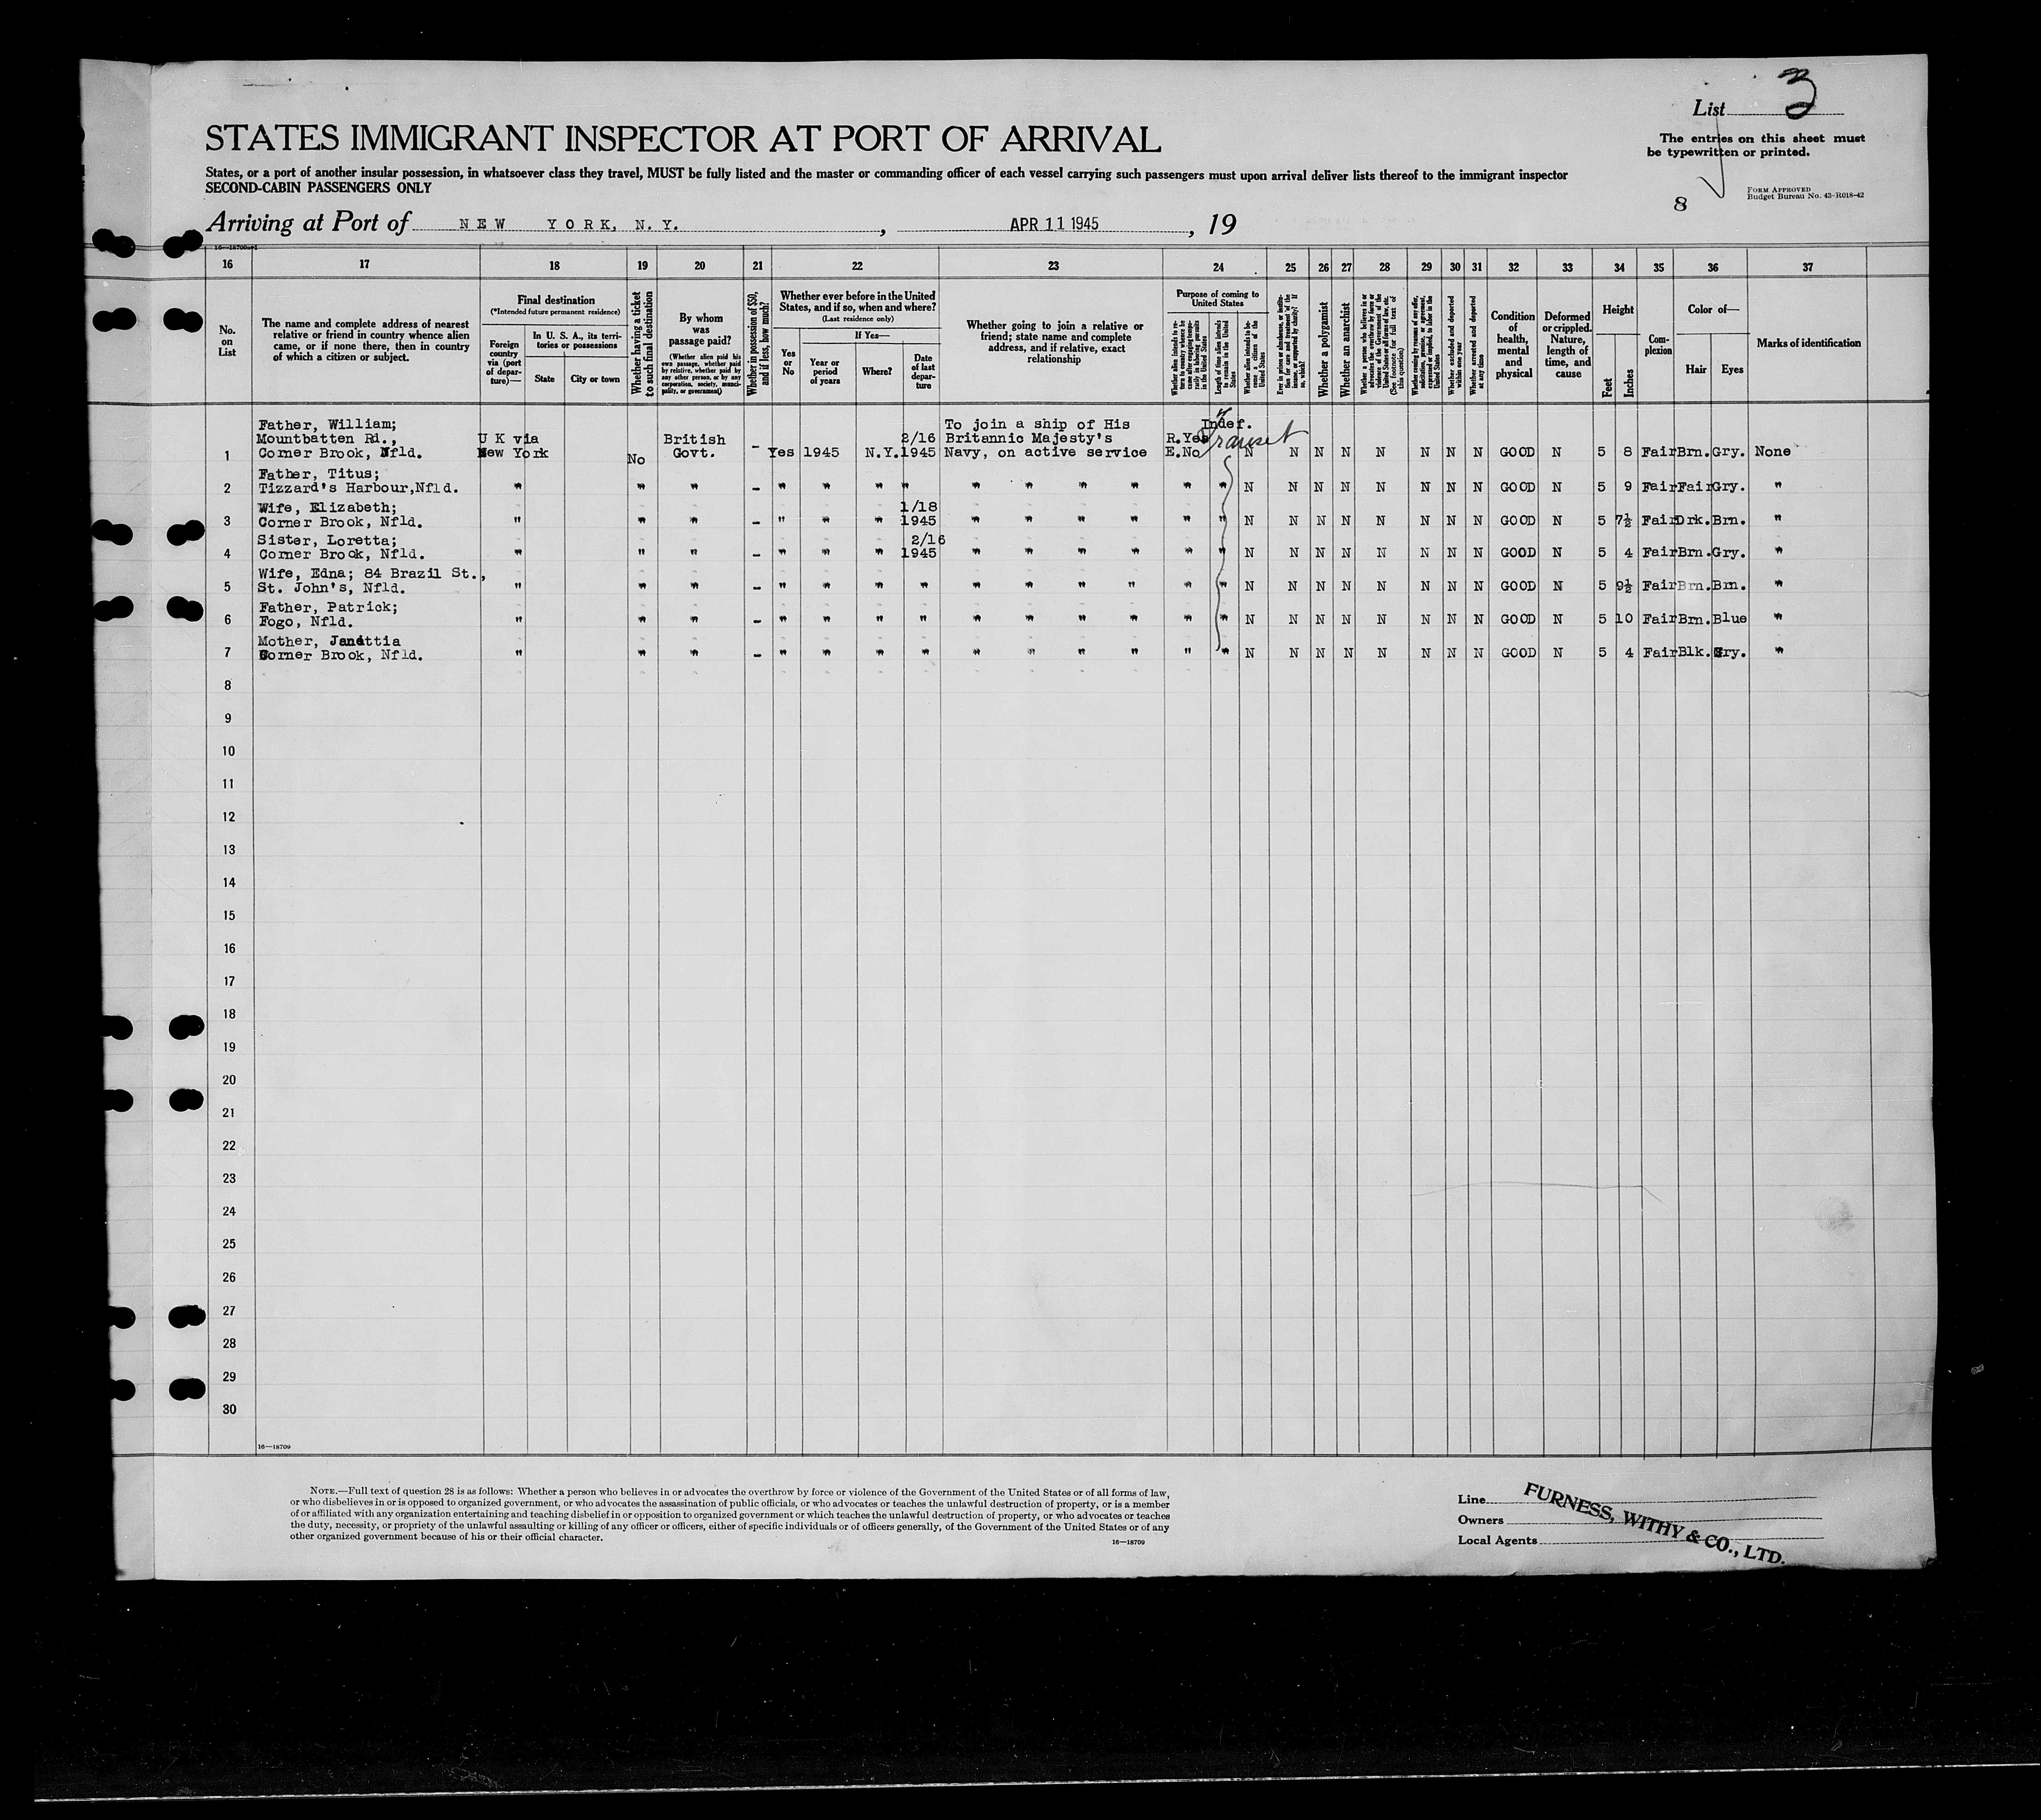 List 3
STATES IMMIGRANT INSPECTOR AT PORT OF ARRIVAL
The entries on this sheet must
be typewritten or printed.
States, or a port of another insular possession, in whatsoever class they travel, MUST be fully listed and the master or commanding officer of each vessel carrying such passengers must upon arrival deliver lists thereof to the immigrant inspector
SECOND-CABIN PASSENGERS ONLY
8
FORM APPROVED
Budget Bureau No. 43-R018-42
Arriving at Port of NEW YORK, N. Y., APR 11 1945, 19
16 17 18 19 20 21 22 23 24 25 26 27 28 29 30 31 32 33 34 35 36 37
No. on List
The name and complete address of nearest
relative or friend in country whence alien
came, or if none there, then in country
of which a citizen or subject.
Final destination
(*Intended future permanent residence)
Foreign country via (port of departure)—
In U. S. A., its territories or possessions
State
City or town
Whether having a ticket to such final destination
By whom was passage paid?
(Whether alien paid his own passage, whether paid by relative, whether paid by any other person, or by any corporation, society, municipality, or government)
Whether in possession of $50, and if less, how much?
Whether ever before in the United States, and if so, when and where?
(Last residence only)
Yes or No
If Yes—
Year or period of years
Where?
Date of last departure
Whether going to join a relative or
friend; state name and complete
address, and if relative, exact
relationship
Purpose of coming to United States
Whether alien intends to become a citizen of the United States
Whether a polygamist
Whether an anarchist
Whether arrested and deported at any time
Condition of health, mental and physical
Deformed or crippled. Nature, length of time, and cause
Height
Feet
Inches
Complexion
Color of—
Hair
Eyes
Marks of identification
Father, William;
Mountbatten Rd.,
1 Corner Brook, Nfld. U K via New York No British Govt. – Yes 1945 N.Y. 2/16 1945 To join a ship of His Britannic Majesty's Navy, on active service R.Yes E.No Indef. Transit N N N N N N N N GOOD N 5 8 Fair Brn. Gry. None
Father, Titus;
2 Tizzard's Harbour,Nfld. " " " – " " " " " " " " " " N N N N N N N N GOOD N 5 9 Fair Fair Gry. "
Wife, Elizabeth;
3 Corner Brook, Nfld. " " " – " " " 1/18 1945 " " " " " " N N N N N N N N GOOD N 5 7½ Fair Drk. Brn. "
Sister, Loretta;
4 Corner Brook, Nfld. " " " – " " " 2/16 1945 " " " " " " N N N N N N N N GOOD N 5 4 Fair Brn. Gry. "
Wife, Edna; 84 Brazil St.,
5 St. John's, Nfld. " " " – " " " " " " " " " " N N N N N N N N GOOD N 5 9½ Fair Brn. Brn. "
Father, Patrick;
6 Fogo, Nfld. " " " – " " " " " " " " " " N N N N N N N N GOOD N 5 10 Fair Brn. Blue "
Mother, Janettia
7 Corner Brook, Nfld. " " " – " " " " " " " " " " N N N N N N N N GOOD N 5 4 Fair Blk. Gry. "
8
9
10
11
12
13
14
15
16
17
18
19
20
21
22
23
24
25
26
27
28
29
30
16—18709
NOTE.—Full text of question 28 is as follows: Whether a person who believes in or advocates the overthrow by force or violence of the Government of the United States or of all forms of law,
or who disbelieves in or is opposed to organized government, or who advocates the assassination of public officials, or who advocates or teaches the unlawful destruction of property, or is a member
of or affiliated with any organization entertaining and teaching disbelief in or opposition to organized government or which teaches the unlawful destruction of property, or who advocates or teaches
the duty, necessity, or propriety of the unlawful assaulting or killing of any officer or officers, either of specific individuals or of officers generally, of the Government of the United States or of any
other organized government because of his or their official character.
16—18709
Line
Owners
Local Agents
FURNESS, WITHY & CO., LTD.